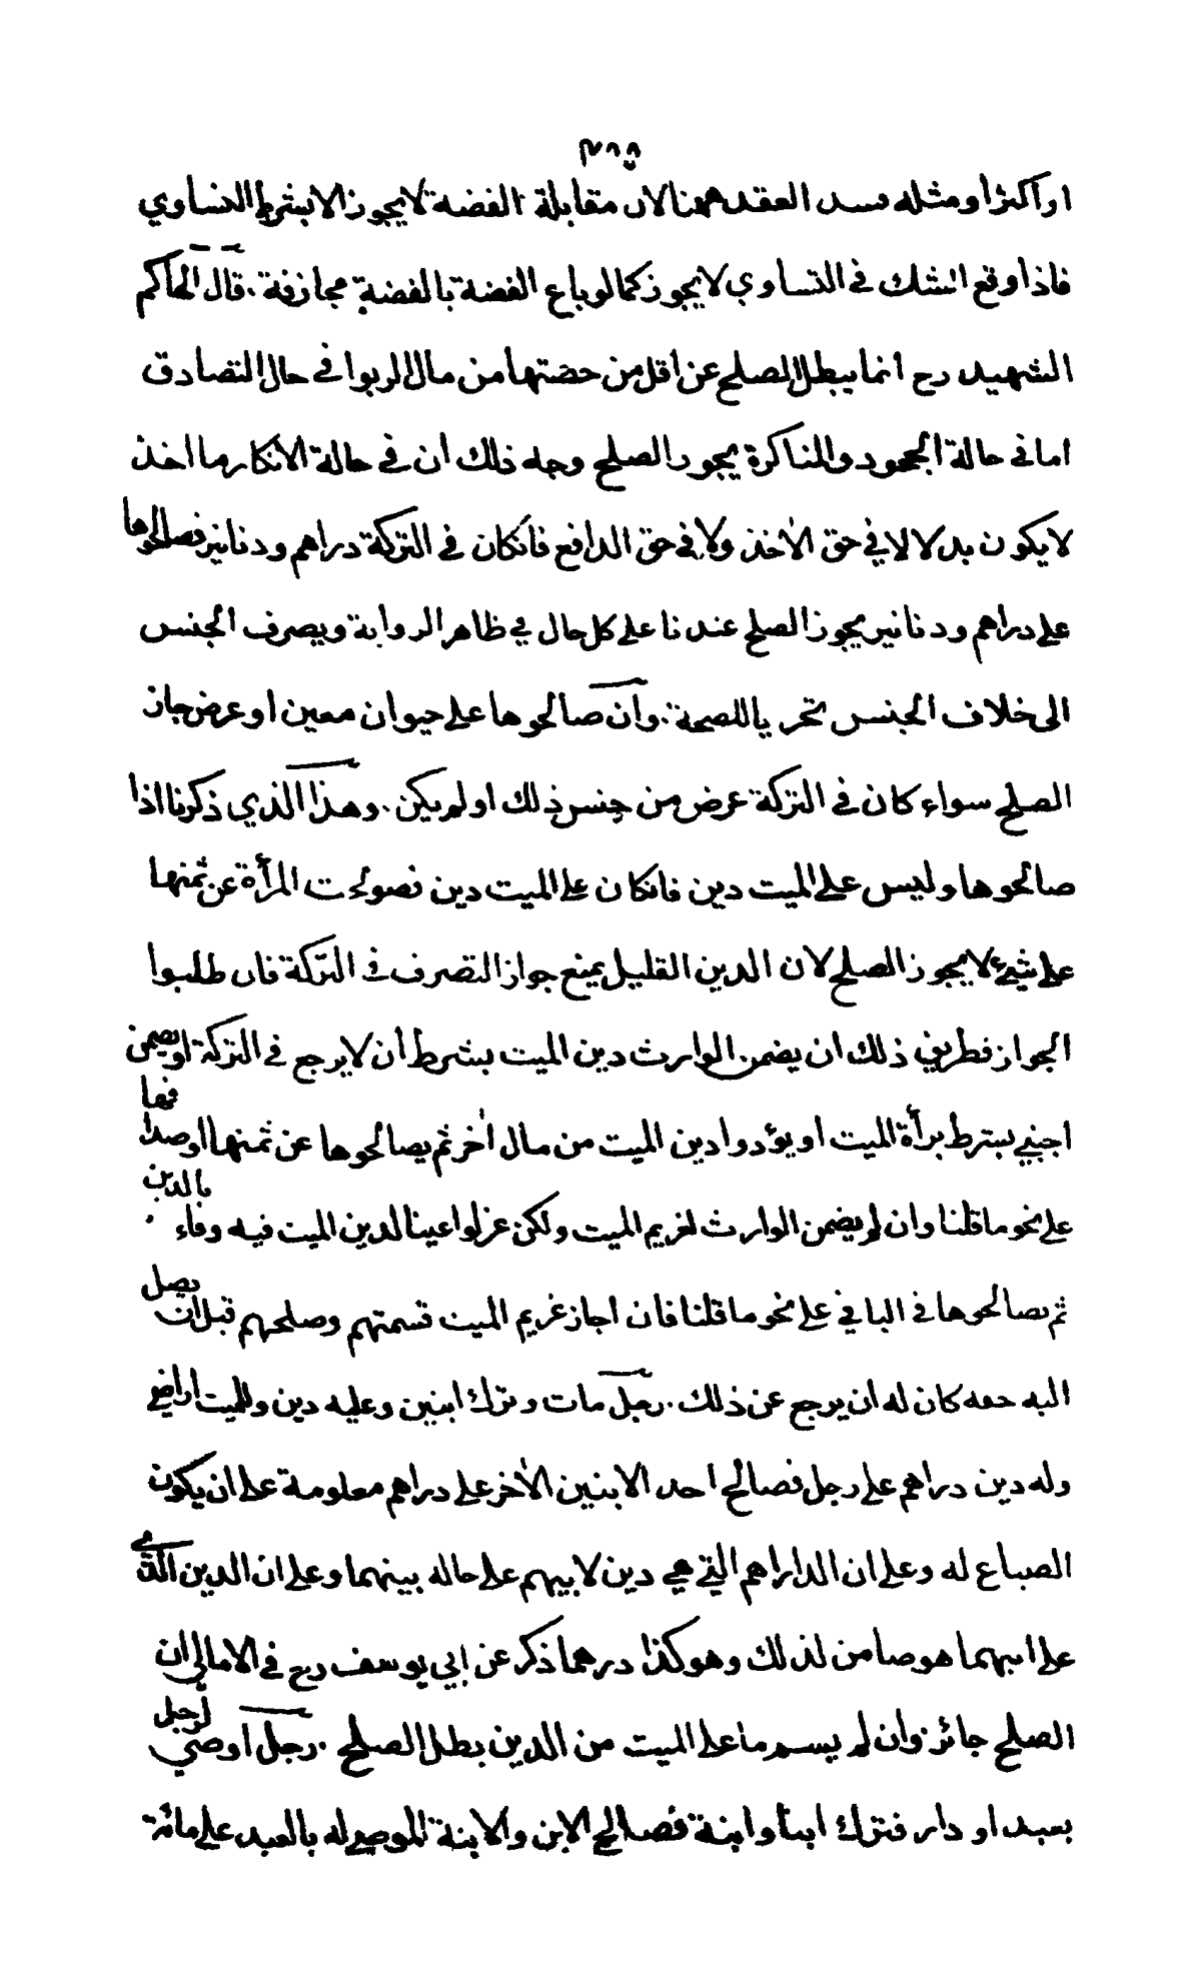 او اكثر او مثله فسد العقد ههنا لان مقابلة الفضة لا يجوز الا بشرط التساوي
فاذا وقع الشك في التساوي لا يجوز كما لو باع الفضة بالفضة مجازفة . قال الحاكم
الشهيد رح انما يبطل الصلح عن اقل من حصتها من مال الربوا في حال التصادق
اما في حالة الجحود والمناكرة يجوز الصلح وجه ذلك ان في حالة الانكار ما اخذ
لا يكون بدلا لا في حق الاخذ ولا في حق الدافع فان كان في التركة دراهم ودنانير فصالحوها
على دراهم ودنانير يجوز الصلح عندنا على كل حال في ظاهر الرواية ويصرف الجنس
الى خلاف الجنس تحريا للصحة . وان صالحوها على حيوان معين او عرض جاز
الصلح سواء كان في التركة عرض من جنس ذلك او لم يكن . وهذا الذي ذكرنا اذا
صالحوها وليس على الميت دين فان كان على الميت دين فصولحت المرأة عن ثمنها
على شيء لا يجوز الصلح لان الدين القليل يمنع جواز التصرف في التركة فان طلبوا
الجواز فطريق ذلك ان يضمن الوارث دين الميت بشرط أن لا يرجع في التركة او يضمن
اجنبي بشرط برأة الميت او يؤدوا دين الميت من مال اخر ثم يصالحوها عن ثمنها او صداقها
على نحو ما قلنا وان لم يضمن الوارث لغريم الميت ولكن عزلوا عينا لدين الميت فيه وفاء بالدين .
ثم يصالحوها في الباقي على نحو ما قلنا فان اجاز غريم الميت قسمتهم وصلحهم قبل ان يصل
اليه حقه كان له ان يرجع عن ذلك . رجل مات وترك ابنين وعليه دين وللميت اراضي
وله دين دراهم على رجل فصالح احد الابنين الاخر على دراهم معلومة على ان يكون
الضياع له وعلى ان الدراهم التي هي دين لابيهم على حاله بينهما وعلى ان الدين الذي
على ابيهما هو ضامن لذلك وهو كذا درهما ذكر عن ابي يوسف رح في الامالي ان
الصلح جائز وان لم يسم ما على الميت من الدين بطل الصلح . رجل اوصى لرجل
بعبد او دار فترك ابنا وابنة فصالح الابن والابنة الموصى له بالعبد على مائة